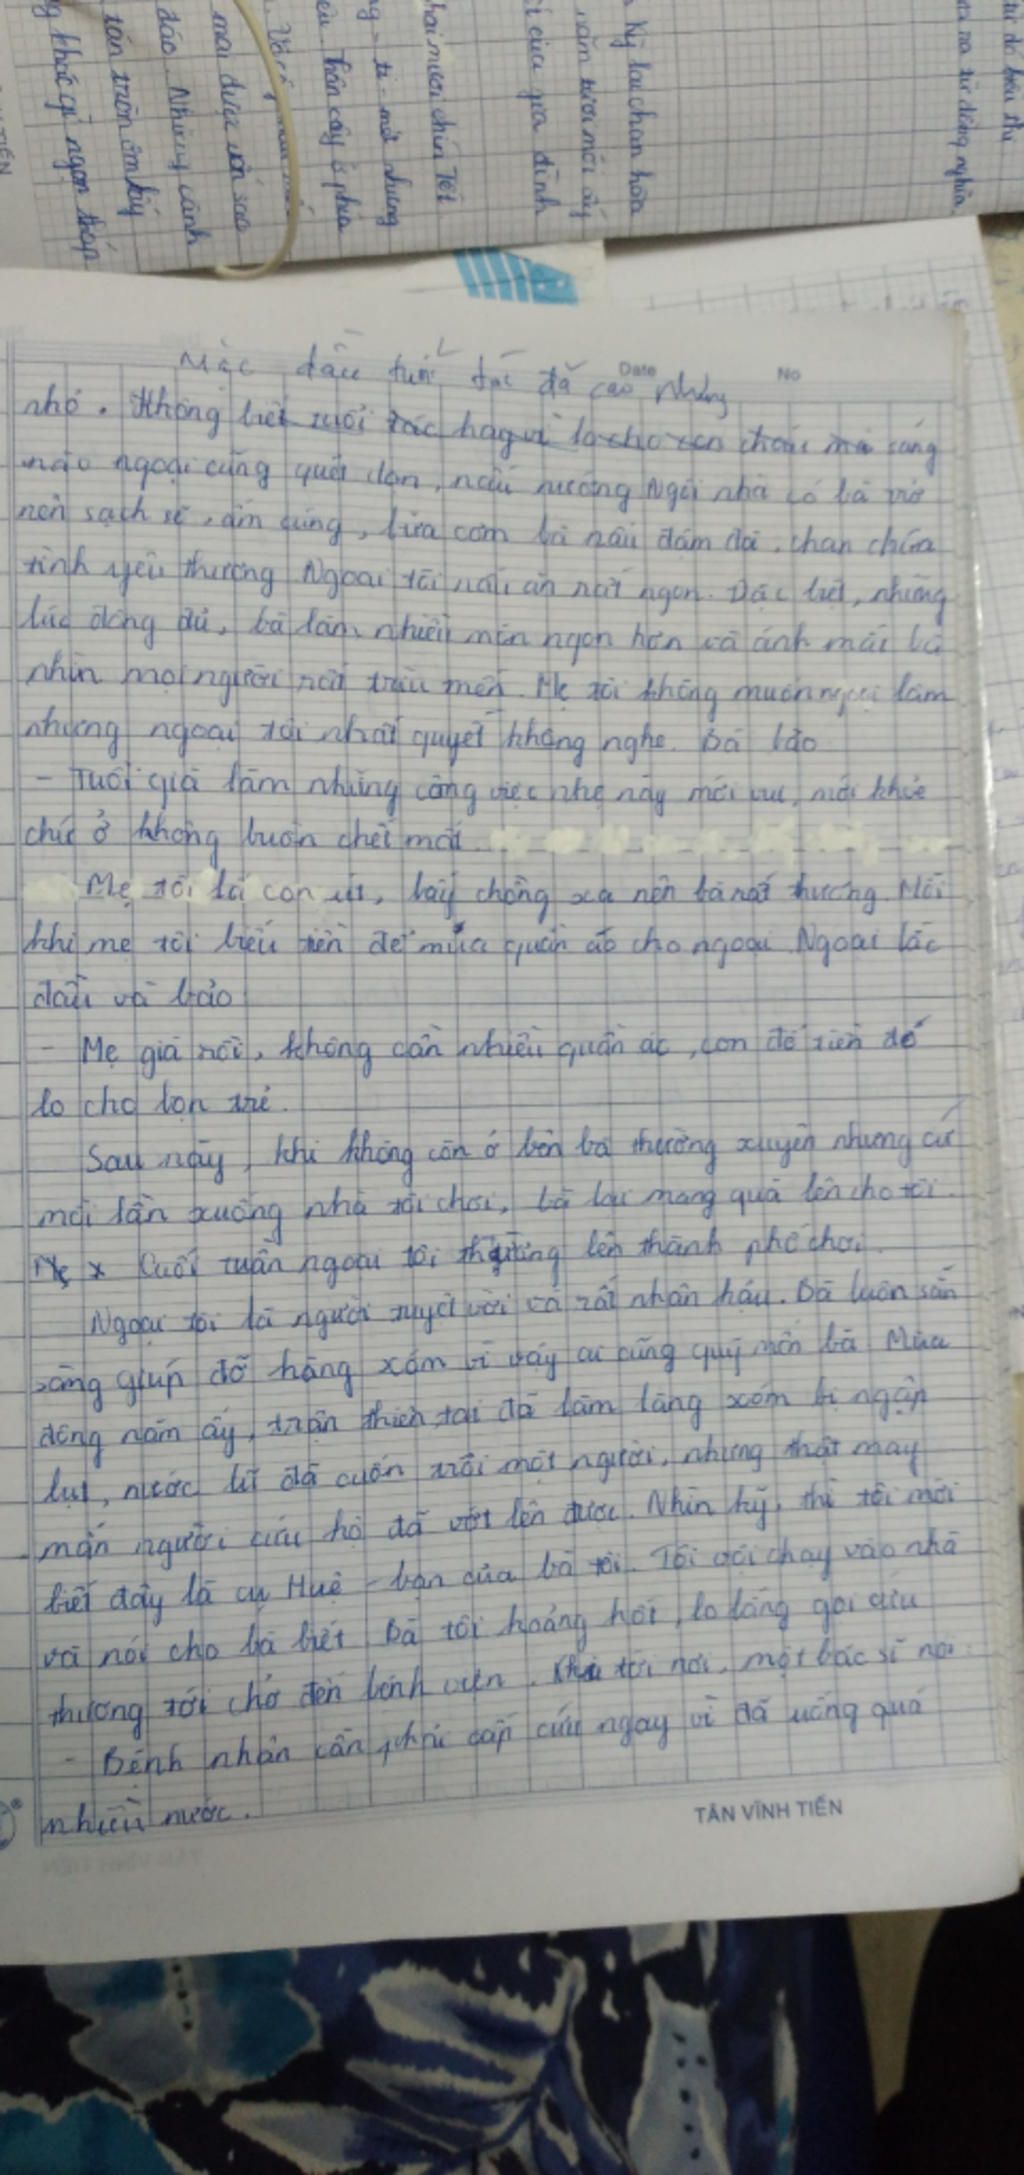 g khác gì ngọn tháp
tán tròn ôm lấy
đáo. Những cành
mai được uốn sao
ều. Thân cây ở phía
g - ti - mét nhưng
hai mươi chín Tết
i cùa gia đình
năm tươi mới ấy
Kỳ lau chan hòa
ra na từ đồng nghĩa
từ đó biểu thị
TIẾN
Mặc dầu tuổi tác đã cao nhưng
Date
No
nhỏ. Không biết tuổi tác hay vì lo cho con cháu mà sáng
nào ngoại cũng quét dọn, nấu nướng Ngôi nhà có bà trở
nên sạch sẽ, ấm cúng, bữa cơm bà nấu đậm đà, chan chứa
tình yêu thương Ngoại tôi nấu ăn rất ngon. Đặc biệt, những
lúc đông đủ, bà làm nhiều món ngon hơn và ánh mắt bà
nhìn mọi người rất trìu mến. Mẹ tôi không muốn ngoại làm
nhưng ngoại tôi nhất quyết không nghe. Bà bảo
- Tuổi già làm những công việc nhẹ này mới vui, mới khỏe
chứ ở không buồn chết mất.
Mẹ tôi là con út, lấy chồng xa nên bà rất thương. Mỗi
khi mẹ tôi biếu tiền để mua quần áo cho ngoại. Ngoại lắc
đầu và bảo
- Mẹ già rồi, không cần nhiều quần áo, con để tiền đó
lo cho bọn trẻ.
Sau này, khi không còn ở bên bà thường xuyên nhưng cứ
mỗi lần xuống nhà tôi chơi, bà lại mang quà lên cho tôi.
Mẹ x Cuối tuần ngoại tôi thường lên thành phố chơi.
Ngoại tôi là người tuyệt vời và rất nhân hậu. Bà luôn sẵn
sàng giúp đỡ hàng xóm vì vậy ai cũng quý mến bà. Mùa
đông năm ấy, trận thiên tai đã làm làng xóm bị ngập
lụt, nước lũ đã cuốn trôi một người, nhưng thật may
mắn người cứu hộ đã vớt lên được. Nhìn kỹ, thì tôi mới
biết đấy là cụ Huệ - bạn của bà tôi. Tôi vội chạy vào nhà
và nói cho bà biết. Bà tôi hoảng hốt, lo lắng gọi cứu
thương tới chở đến bệnh viện. Khi tới nơi, một bác sĩ nói:
- Bệnh nhân cần phải cấp cứu ngay vì đã uống quá
nhiều nước.
TÂN VĨNH TIẾN